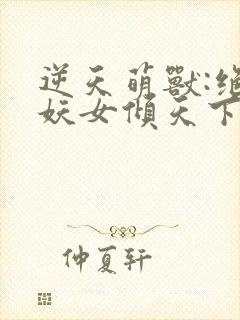 逆天萌獸:絕
妖女傾天下
仲夏轩